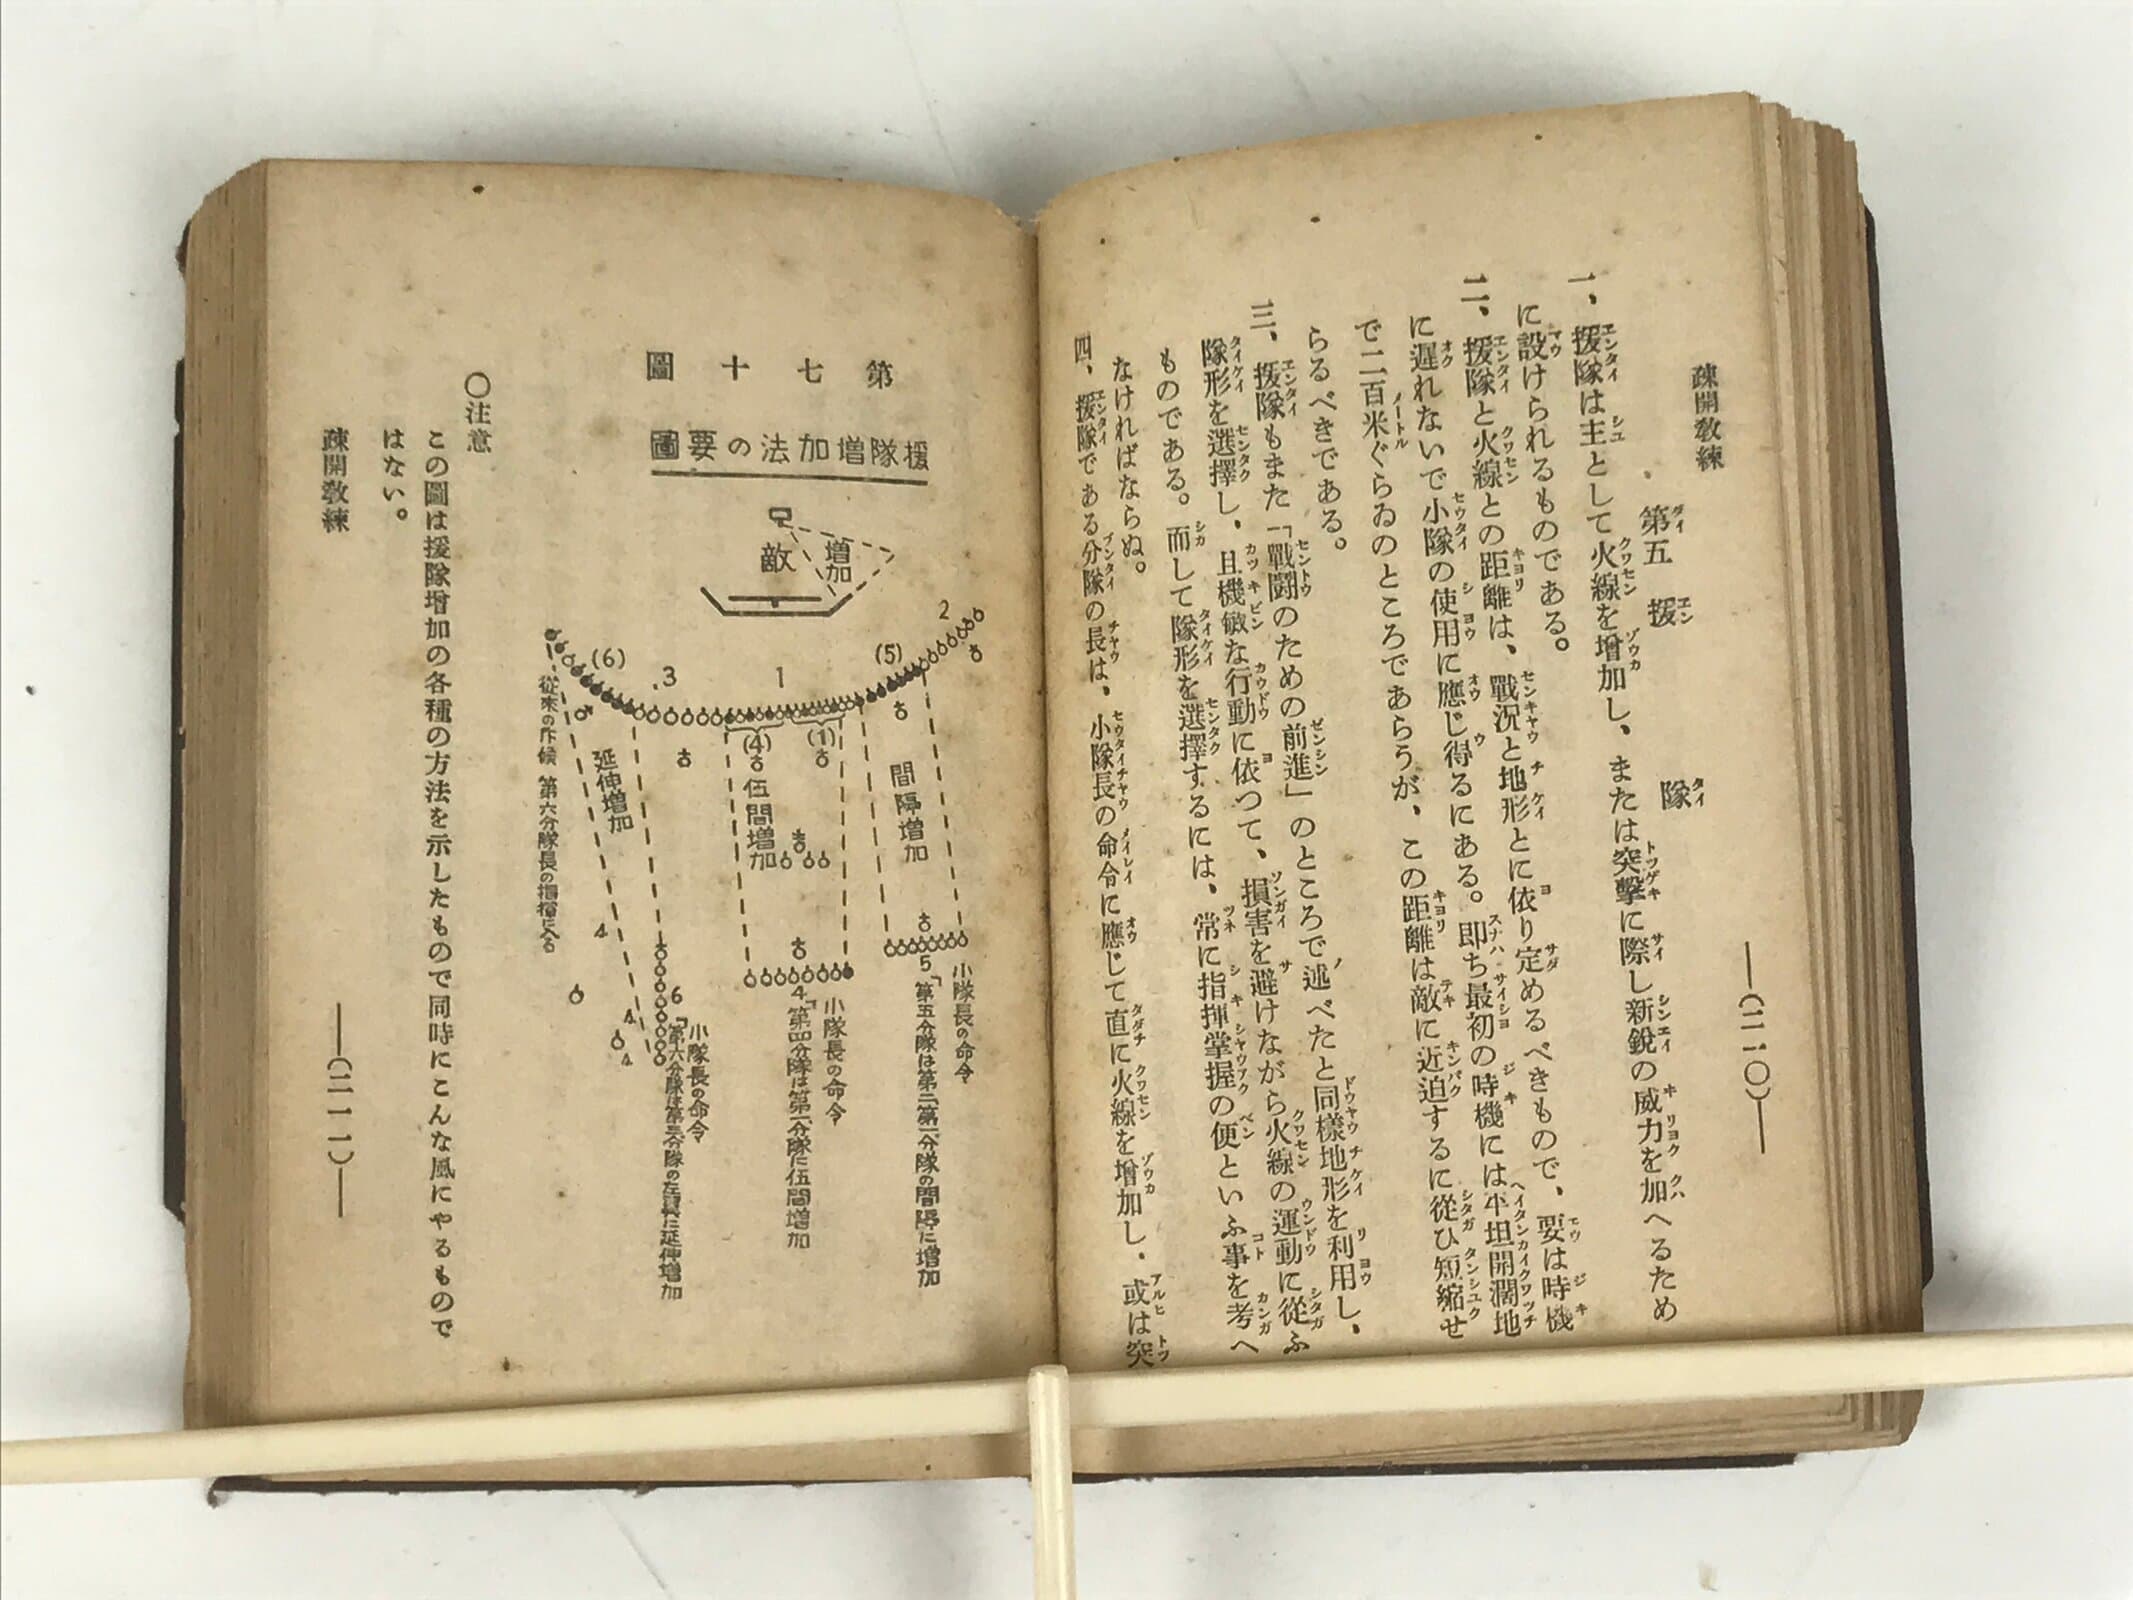 疎開教練
―(二一〇)―
第五 援隊
一、援隊は主として火線を增加し、または突擊に際し新銳の威力を加へるため
に設けられるものである。
二、援隊と火線との距離は、戰況と地形とに依り定めるべきもので、要は時機
に遲れないで小隊の使用に應じ得るにある。卽ち最初の時機には平坦開濶地
で二百米ぐらゐのところであらうが、この距離は敵に近迫するに從ひ短縮せ
らるべきである。
三、援隊もまた「戰鬪のための前進」のところで述べたと同樣地形を利用し、
隊形を選擇し、且機敏な行動に依つて、損害を避けながら火線の運動に從ふ
ものである。而して隊形を選擇するには、常に指揮掌握の便といふ事を考へ
なければならぬ。
四、援隊である分隊の長は、小隊長の命令に應じて直に火線を增加し、或は突
第七十圖
援隊增加法の要圖
敵
增加
2
(5)
1
3
(6)
(1)
(4)
間隔增加
伍間增加
延伸增加
從來の斥候 第六分隊長の指揮に入る
小隊長の命令
5「第五分隊は第二第一分隊の間隔に增加
小隊長の命令
4「第四分隊は第一分隊に伍間增加
小隊長の命令
6「第六分隊は第三分隊の左翼に延伸增加
〇注意
この圖は援隊增加の各種の方法を示したもので同時にこんな風にやるもので
はない。
疎開敎練
―(二一一)―